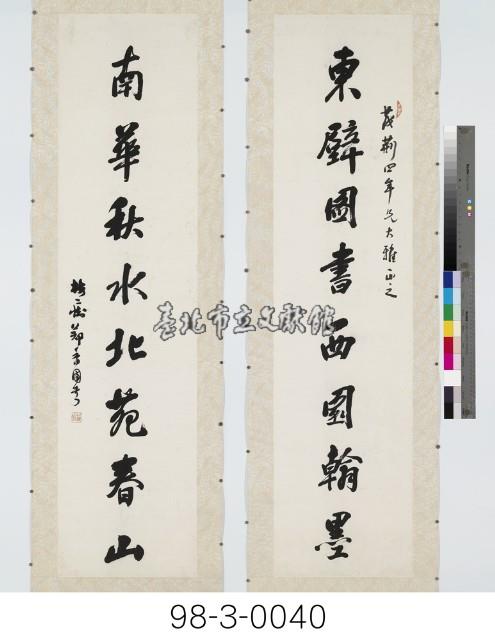 東壁圖書西園翰墨
茂荊四年兄大雅正之
南華秋水北苑春山
臺北市立文獻館
98-3-0040